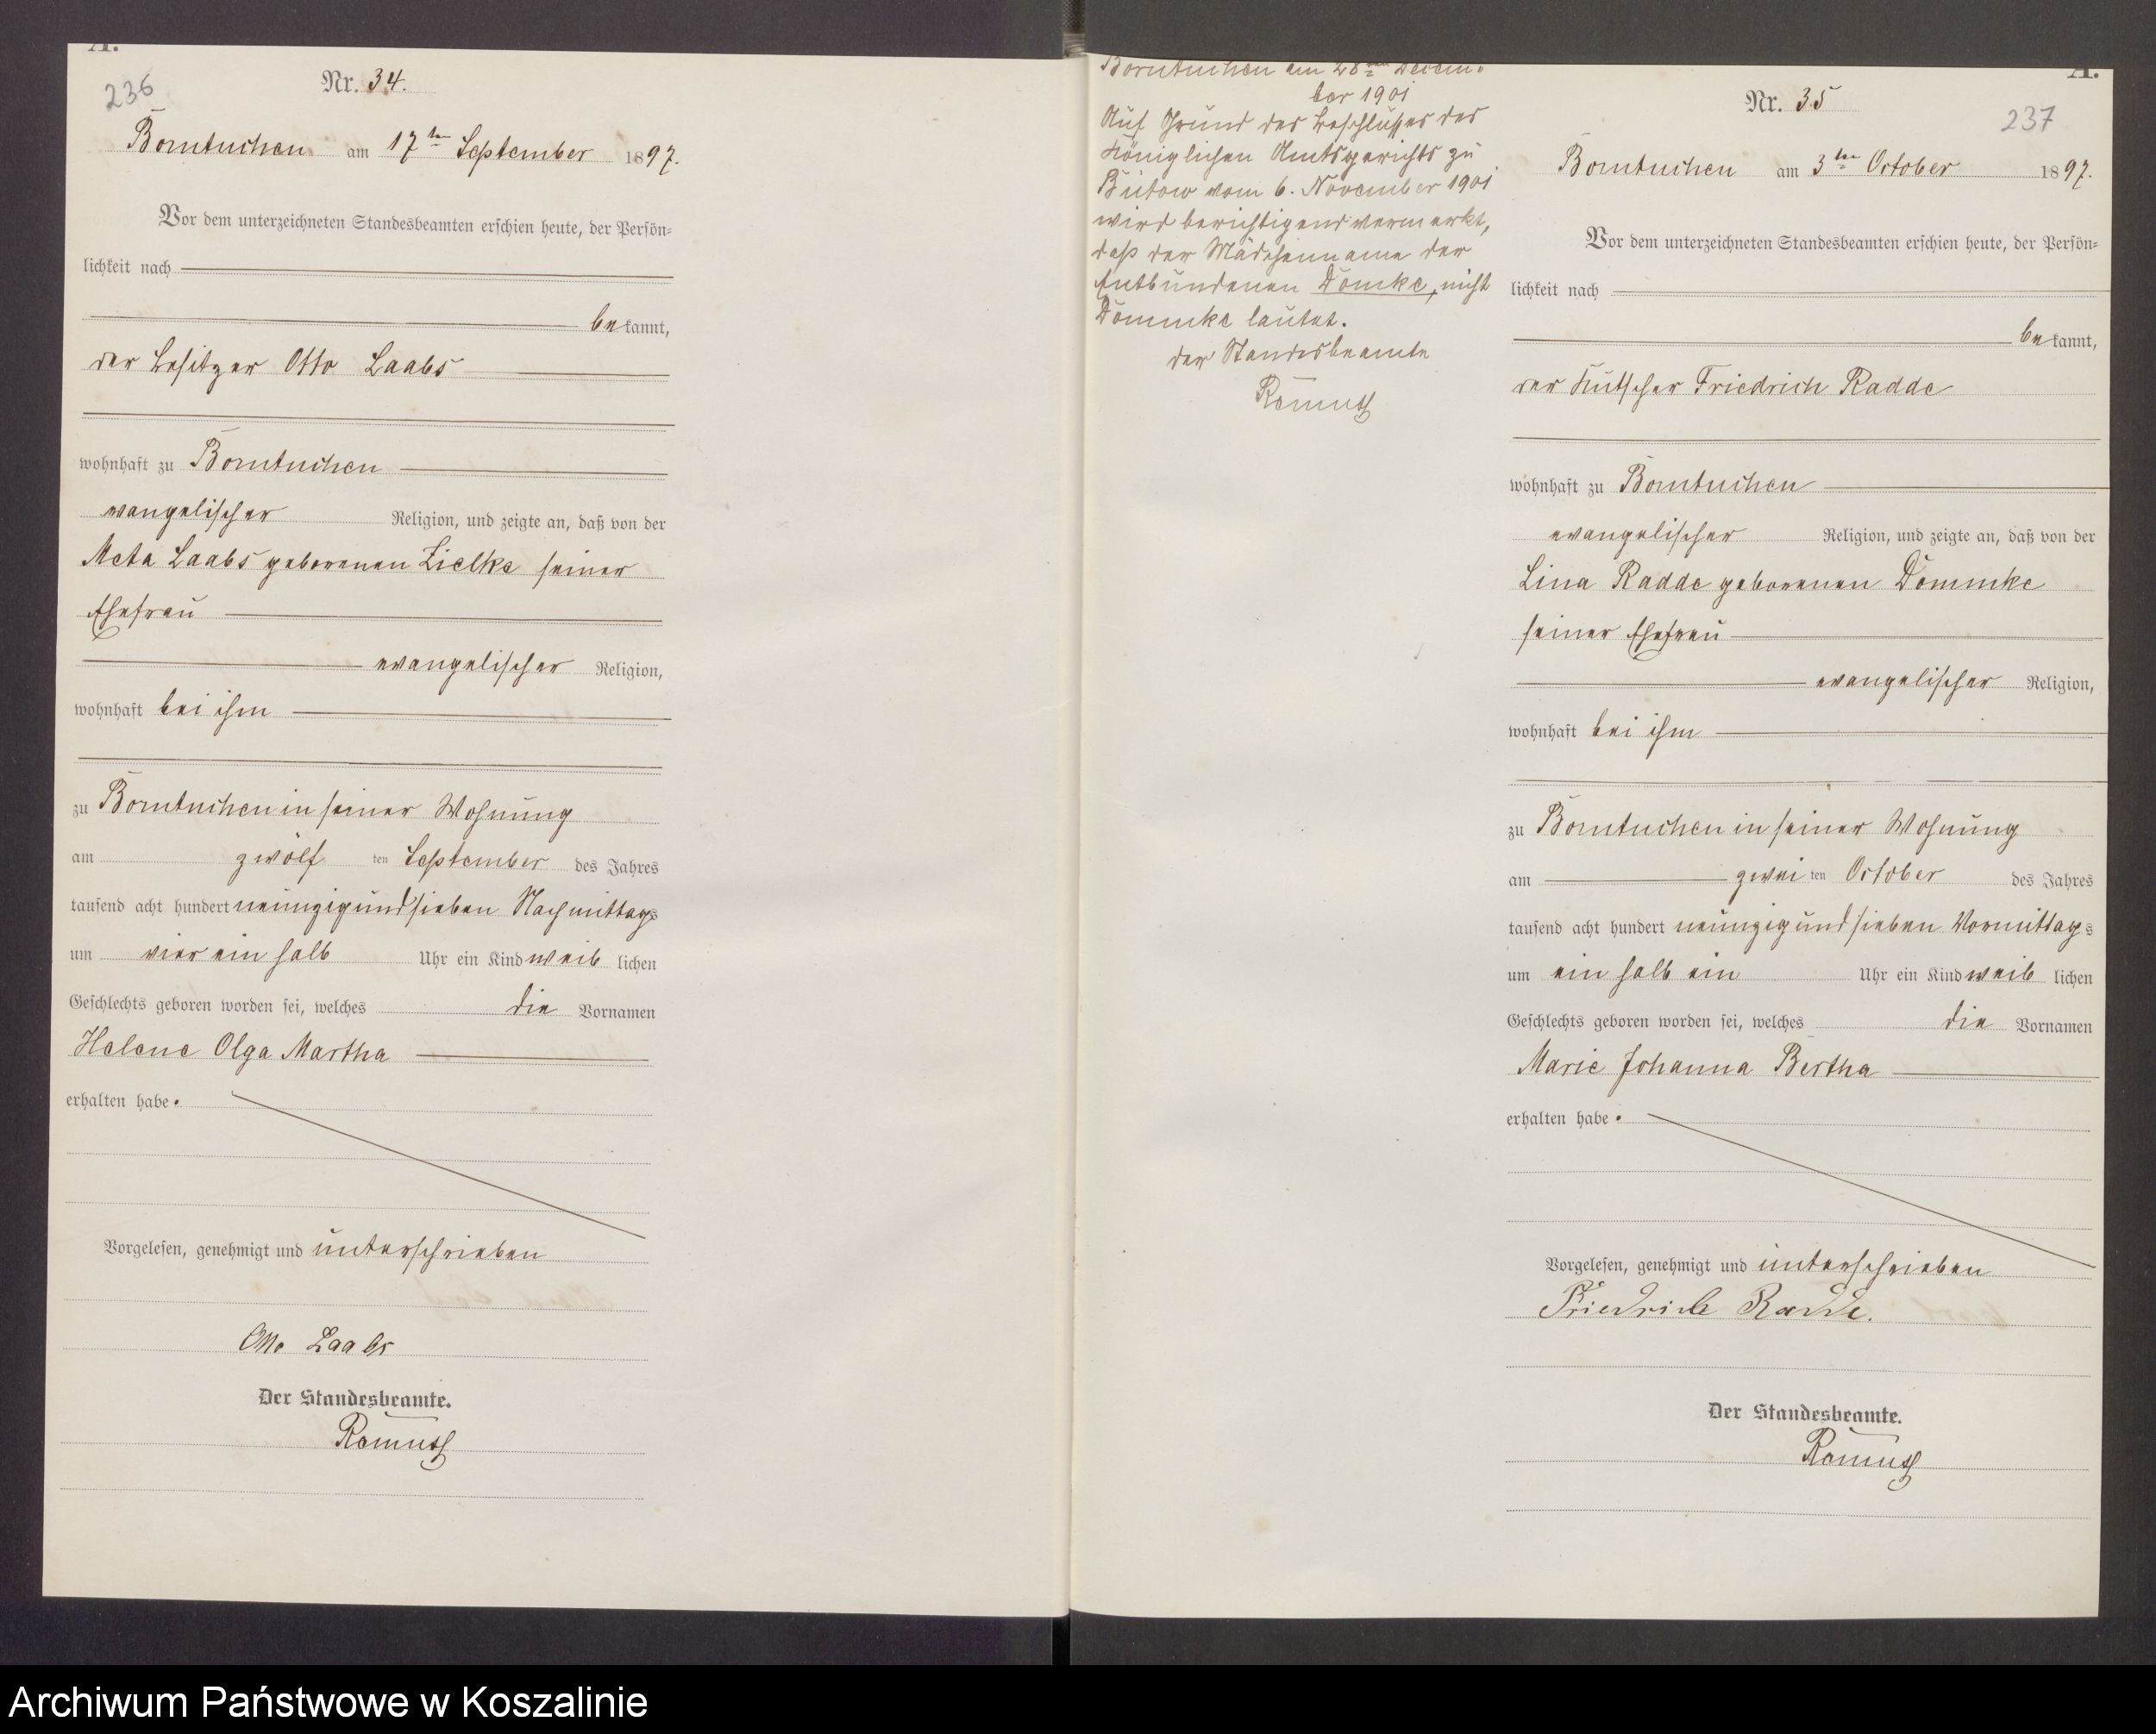 A.
236
Nr. 34.
Borntuchen am 17ten September 1897.
Vor dem unterzeichneten Standesbeamten erschien heute, der Persön=
lichkeit nach
bekannt,
der Besitzer Otto Laabs
wohnhaft zu Borntuchen
evangelischer Religion, und zeigte an, daß von der
Meta Laabs geborenen Zielke seiner
Ehefrau
evangelischer Religion,
wohnhaft bei ihm
zu Borntuchen in seiner Wohnung
am zwölf ten September des Jahres
tausend acht hundert neunzig und sieben Nachmittags
um vier ein halb Uhr ein Kind weiblichen
Geschlechts geboren worden sei, welches die Vornamen
Helene Olga Martha
erhalten habe.
Vorgelesen, genehmigt und unterschrieben
Otto Laabs
Der Standesbeamte.
Borntuchen am 28ten Decem-
ber 1901
Auf Grund des Beschlusses des
Königlichen Amtsgerichts zu
Bütow vom 6. November 1901
wird berichtigend vermerkt,
daß der Mädchenname der
Entbundenen Domke, nicht
Dommke lautet.
der Standesbeamte
A.
Nr. 35
237
Borntuchen am 3ten October 1897.
Vor dem unterzeichneten Standesbeamten erschien heute, der Persön=
lichkeit nach
bekannt,
der Kutscher Friedrich Radde
wohnhaft zu Borntuchen
evangelischer Religion, und zeigte an, daß von der
Lina Radde geborenen Dommke
seiner Ehefrau
evangelischer Religion,
wohnhaft bei ihm
zu Borntuchen in seiner Wohnung
am zwei ten October des Jahres
tausend acht hundert neunzig und sieben Vormittags
um ein halb ein Uhr ein Kind weiblichen
Geschlechts geboren worden sei, welches die Vornamen
Marie Johanna Bertha
erhalten habe.
Vorgelesen, genehmigt und unterschrieben
Friedrich Radde.
Der Standesbeamte.
Archiwum Państwowe w Koszalinie